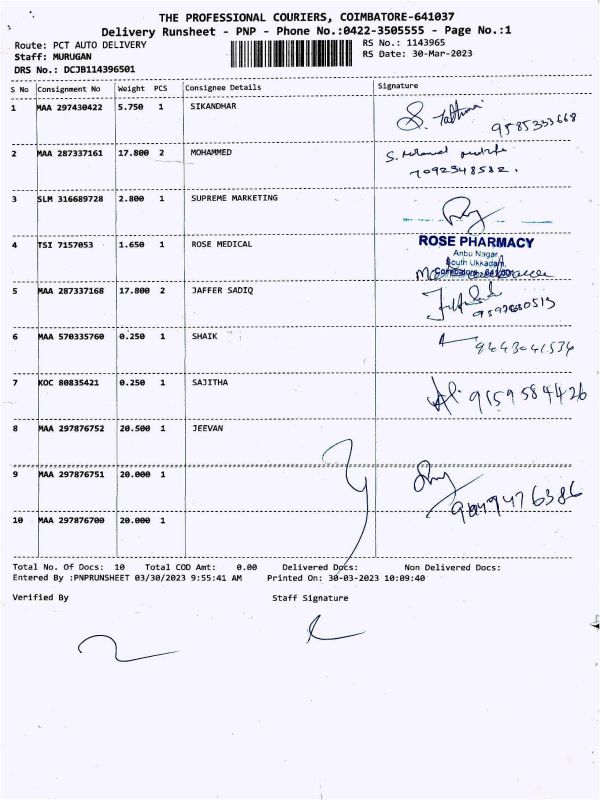 THE PROFESSIONAL COURIERS, COIMBATORE-641037
Delivery Runsheet - PNP - Phone No.:0422-3505555 - Page No.:1
Route: PCT AUTO DELIVERY
RS No.: 1143965
Staff: MURUGAN
RS Date: 30-Mar-2023
DRS No.: DCJB114396501
S No Consignment No Weight PCS Consignee Details Signature
1 MAA 297430422 5.750 1 SIKANDHAR
9585333668
2 MAA 287337161 17.800 2 MOHAMMED
7092348582.
3 SLM 316689728 2.800 1 SUPREME MARKETING
4 TSI 7157053 1.650 1 ROSE MEDICAL
ROSE PHARMACY
Anbu Nagar,
South Ukkadam,
5 MAA 287337168 17.800 2 JAFFER SADIQ
6 MAA 570335760 0.250 1 SHAIK
9643041536
7 KOC 80835421 0.250 1 SAJITHA
9159584426
8 MAA 297876752 20.500 1 JEEVAN
9 MAA 297876751 20.000 1
10 MAA 297876700 20.000 1
Total No. Of Docs: 10 Total COD Amt: 0.00 Delivered Docs: Non Delivered Docs:
Entered By :PNPRUNSHEET 03/30/2023 9:55:41 AM Printed On: 30-03-2023 10:09:40
Verified By Staff Signature